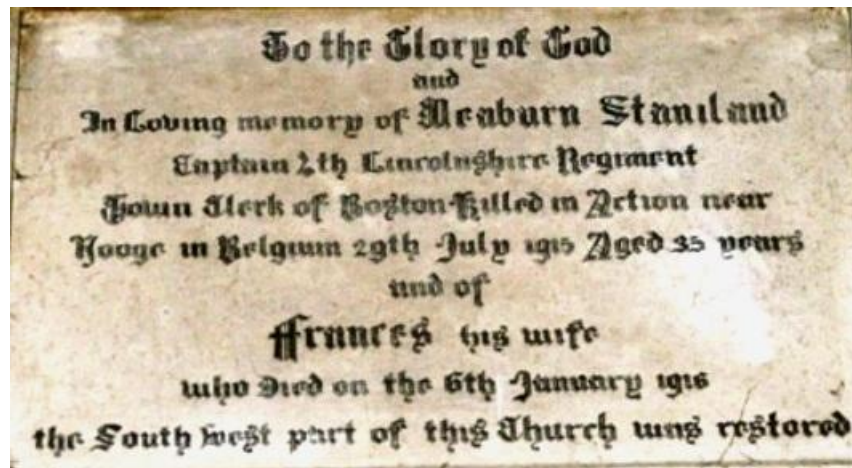 To the Glory of God
and
In Loving memory of Meaburn Staniland
Captain 4th Lincolnshire Regiment
Town Clerk of Boston Killed in Action near
Hooge in Belgium 29th July 1915 Aged 35 years
and of
Frances his wife
who Died on the 6th January 1916
the South West part of this Church was restored